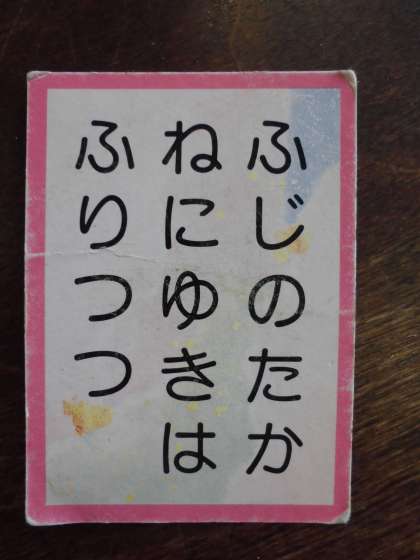 ふじのたか
ねにゆきは
ふりつつ